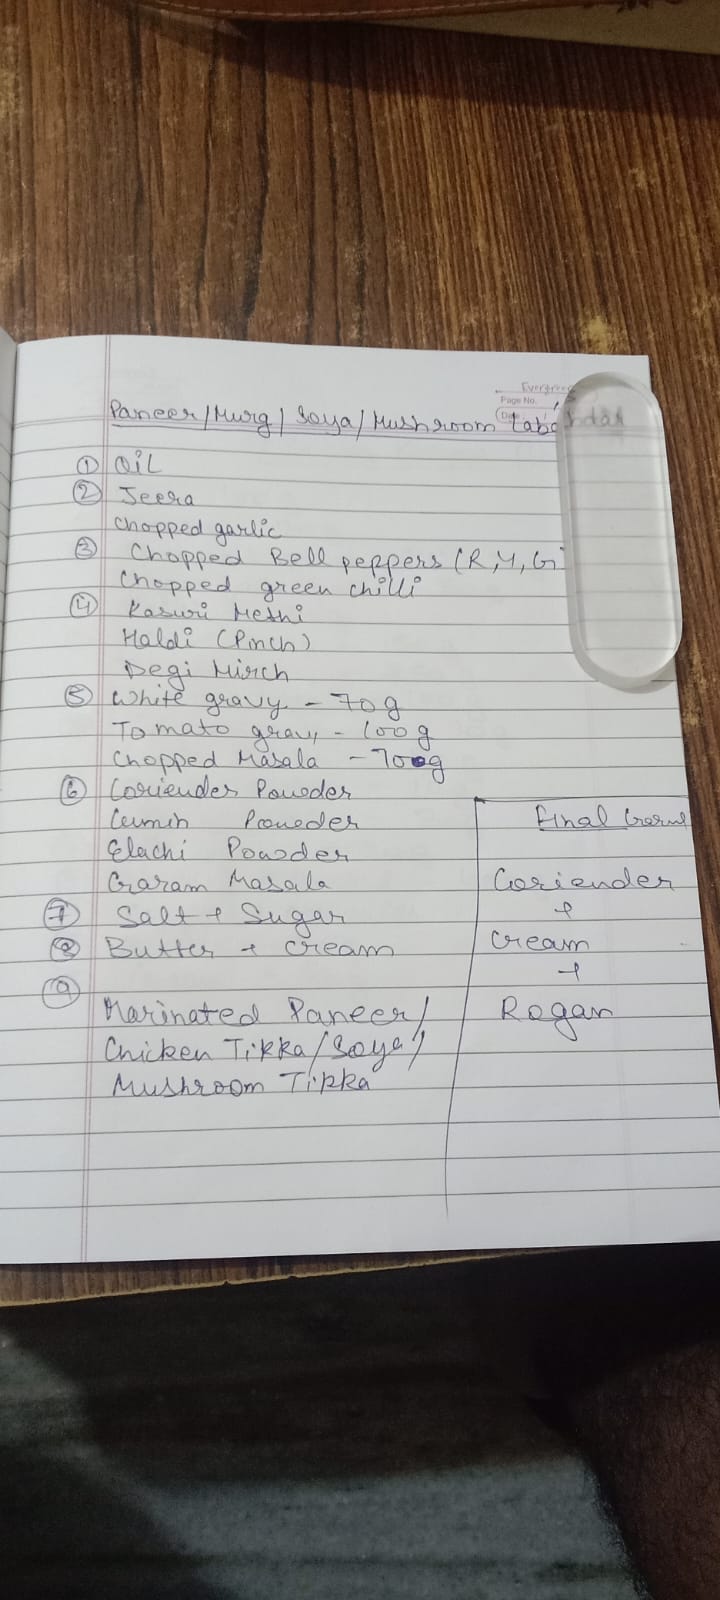 Evergreen
Page No.
Date
Paneer/Murg/Soya/Mushroom Labahdar
① OiL
② Jeera
Chopped garlic
③ Chopped Bell peppers (R,Y,G)
Chopped green chilli
④ Kasuri Methi
Haldi (Pinch)
Degi Mirch
⑤ White gravy - 70g
Tomato gravy - 100g
Chopped Masala - 700g
⑥ Coriender Powder
Cumin Powder
Elachi Powder
Garam Masala
⑦ Salt + Sugar
⑧ Butter + Cream
⑨
Marinated Paneer/
Chicken Tikka/Soya/
Mushroom Tikka
Final
Coriender
+
Cream
+
Rogan